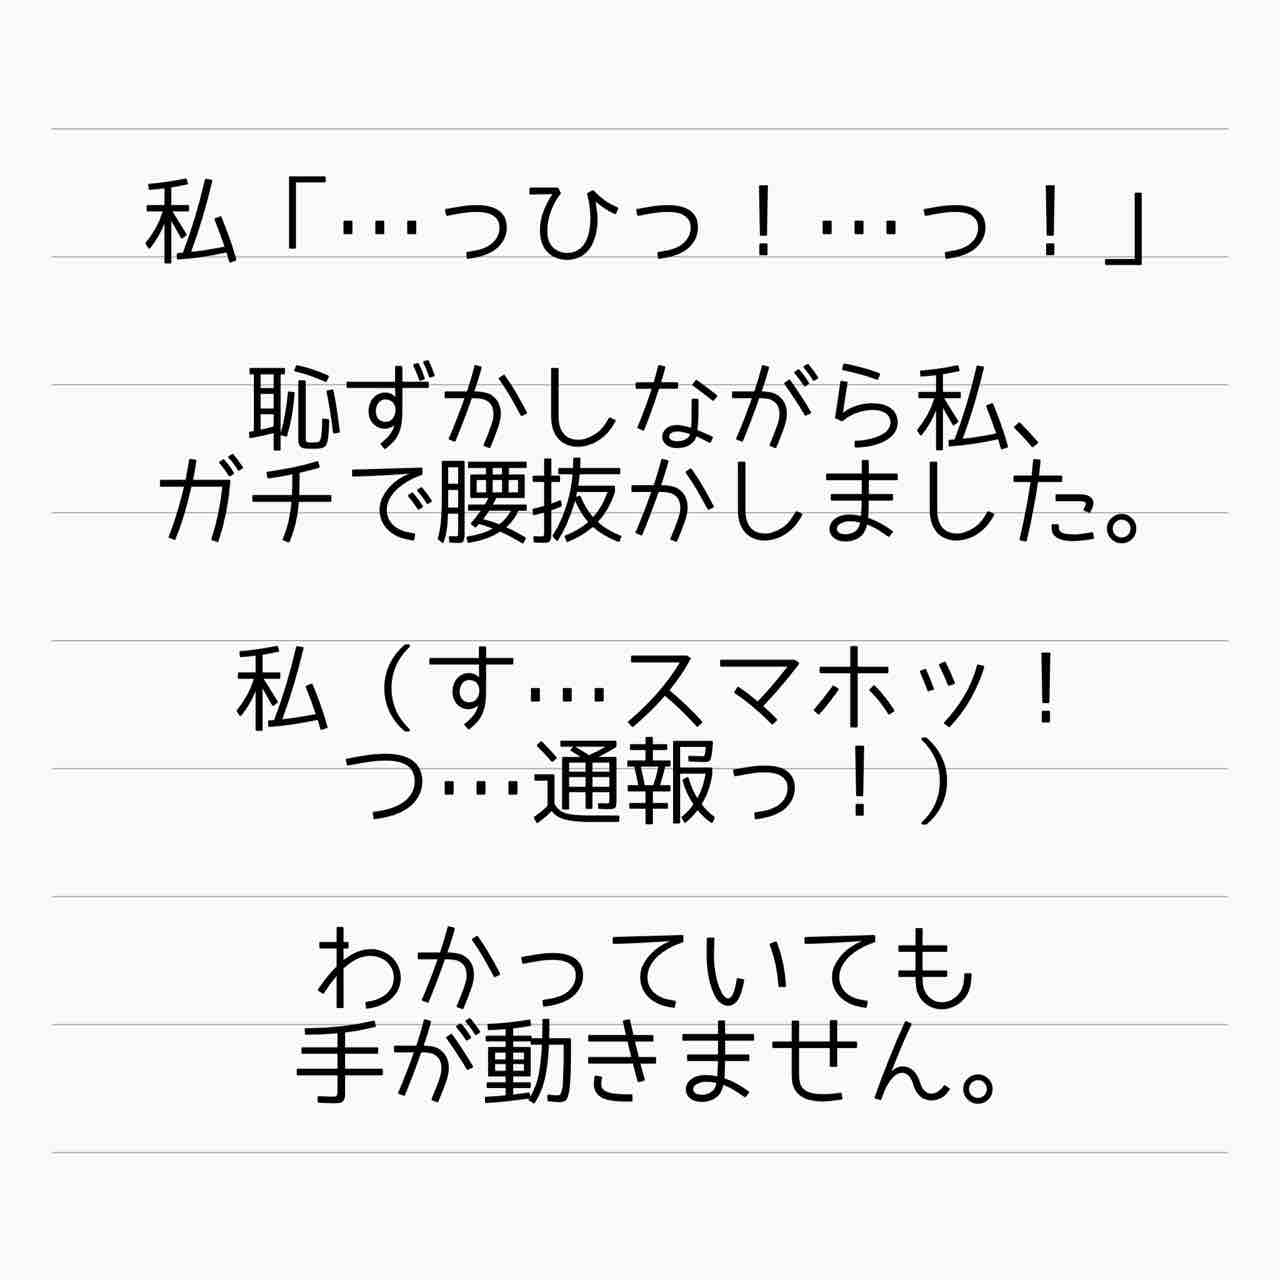 私「…っひっ！…っ！」
恥ずかしながら私、
ガチで腰抜かしました。
私（す…スマホッ！
つ…通報っ！）
わかっていても
手が動きません。